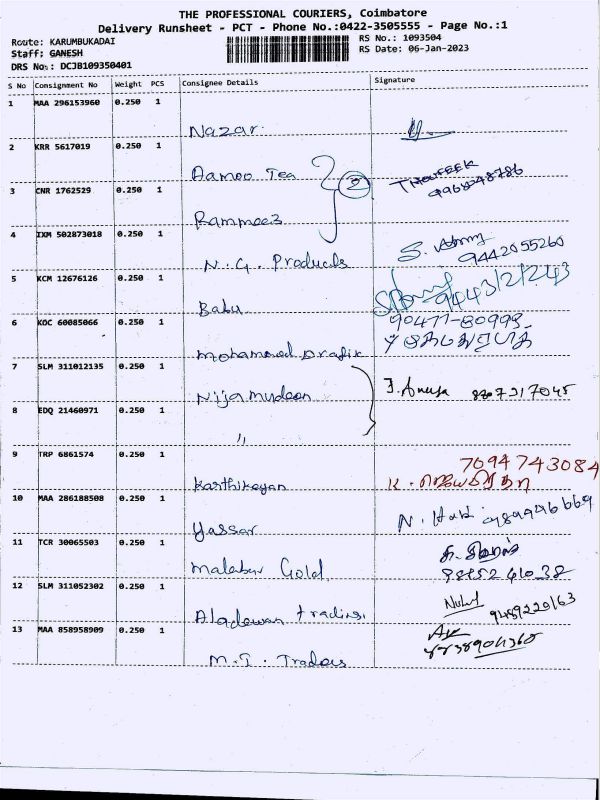 THE PROFESSIONAL COURIERS, Coimbatore
Delivery Runsheet - PCT - Phone No.:0422-3505555 - Page No.:1
Route: KARUMBUKADAI
RS No.: 1093504
Staff: GANESH
RS Date: 06-Jan-2023
DRS No.: DCJB109350401
S No Consignment No Weight PCS Consignee Details Signature
1 MAA 296153960 0.250 1
Nazar
2 KRR 5617019 0.250 1
Aamoo Tea 2 THOUFEEK
3 CNR 1762529 0.250 1
4 IXM 502873018 0.250 1
N. G. Products 9442055260
5 KCM 12676126 0.250 1
Babu 9043121243
6 KOC 60085066 0.250 1 90477-80993
Mohammed Drafik
7 SLM 311012135 0.250 1
Nijamudeen
8 EDQ 21460971 0.250 1
"
9 TRP 6861574 0.250 1 7094743084
Karthikeyan
10 MAA 286188508 0.250 1
Yassar
11 TCR 30065503 0.250 1
Malabar Gold
12 SLM 311052302 0.250 1
9489220163
13 MAA 858958909 0.250 1
M.T. Traders